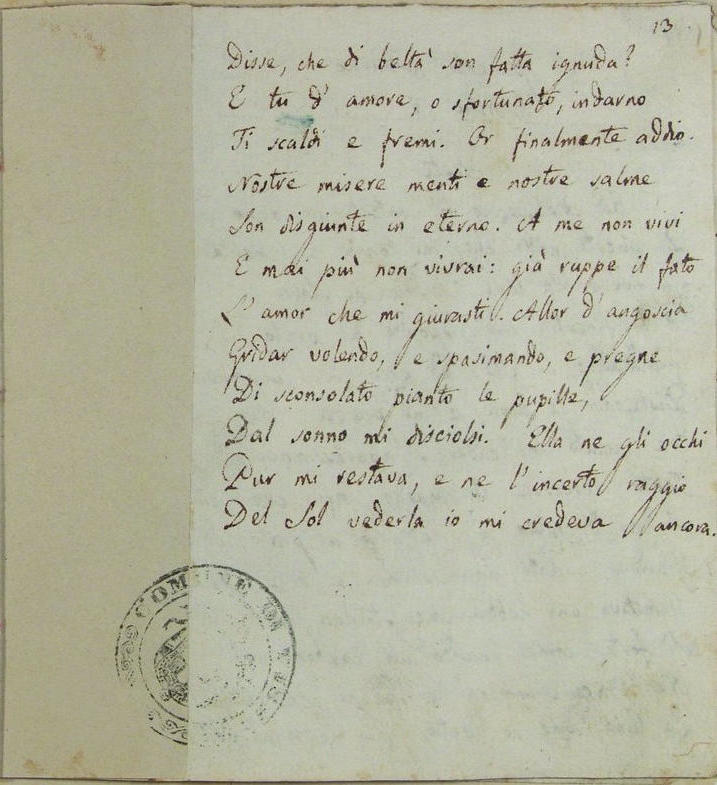 13
Disse, che di beltà son fatta ignuda?
E tu d' amore, o sfortunato, indarno
Ti scaldi e fremi. Or finalmente addio.
Nostre misere menti e nostre salme
Son disgiunte in eterno. A me non vivi
E mai più non vivrai: già ruppe il fato
L' amor che mi giurasti. Allor d' angoscia
Gridar volendo, e spasimando, e pregne
Di sconsolato pianto le pupille,
Dal sonno mi disciolsi. Ella ne gli occhi
Pur mi restava, e ne l' incerto raggio
Del Sol vederla io mi credeva ancora.
COMUNE DI